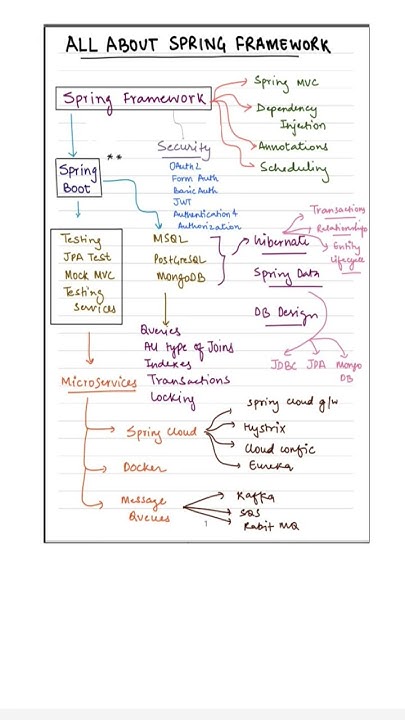 ALL ABOUT SPRING FRAMEWORK
Spring Framework
Spring MVC
Dependency
Injection
Annotations
Scheduling
Security
OAuth2
Form Auth
Basic Auth
JWT
Authentication &
Authorization
**
Spring
Boot
Testing
JPA Test
Mock MVC
Testing
Services
MSQL
PostGreSQL
MongoDB
Hibernate
Transactions
Relationship
Entity
Lifecycle
Spring Data
DB Design
JDBC JPA Mongo
DB
Queries
All type of Joins
Indexes
Transactions
Locking
Microservices
Spring Cloud
Spring cloud g/w
Hystrix
Cloud config
Eureka
Docker
Message
Queues
Kafka
SQS
Rabit MQ
1